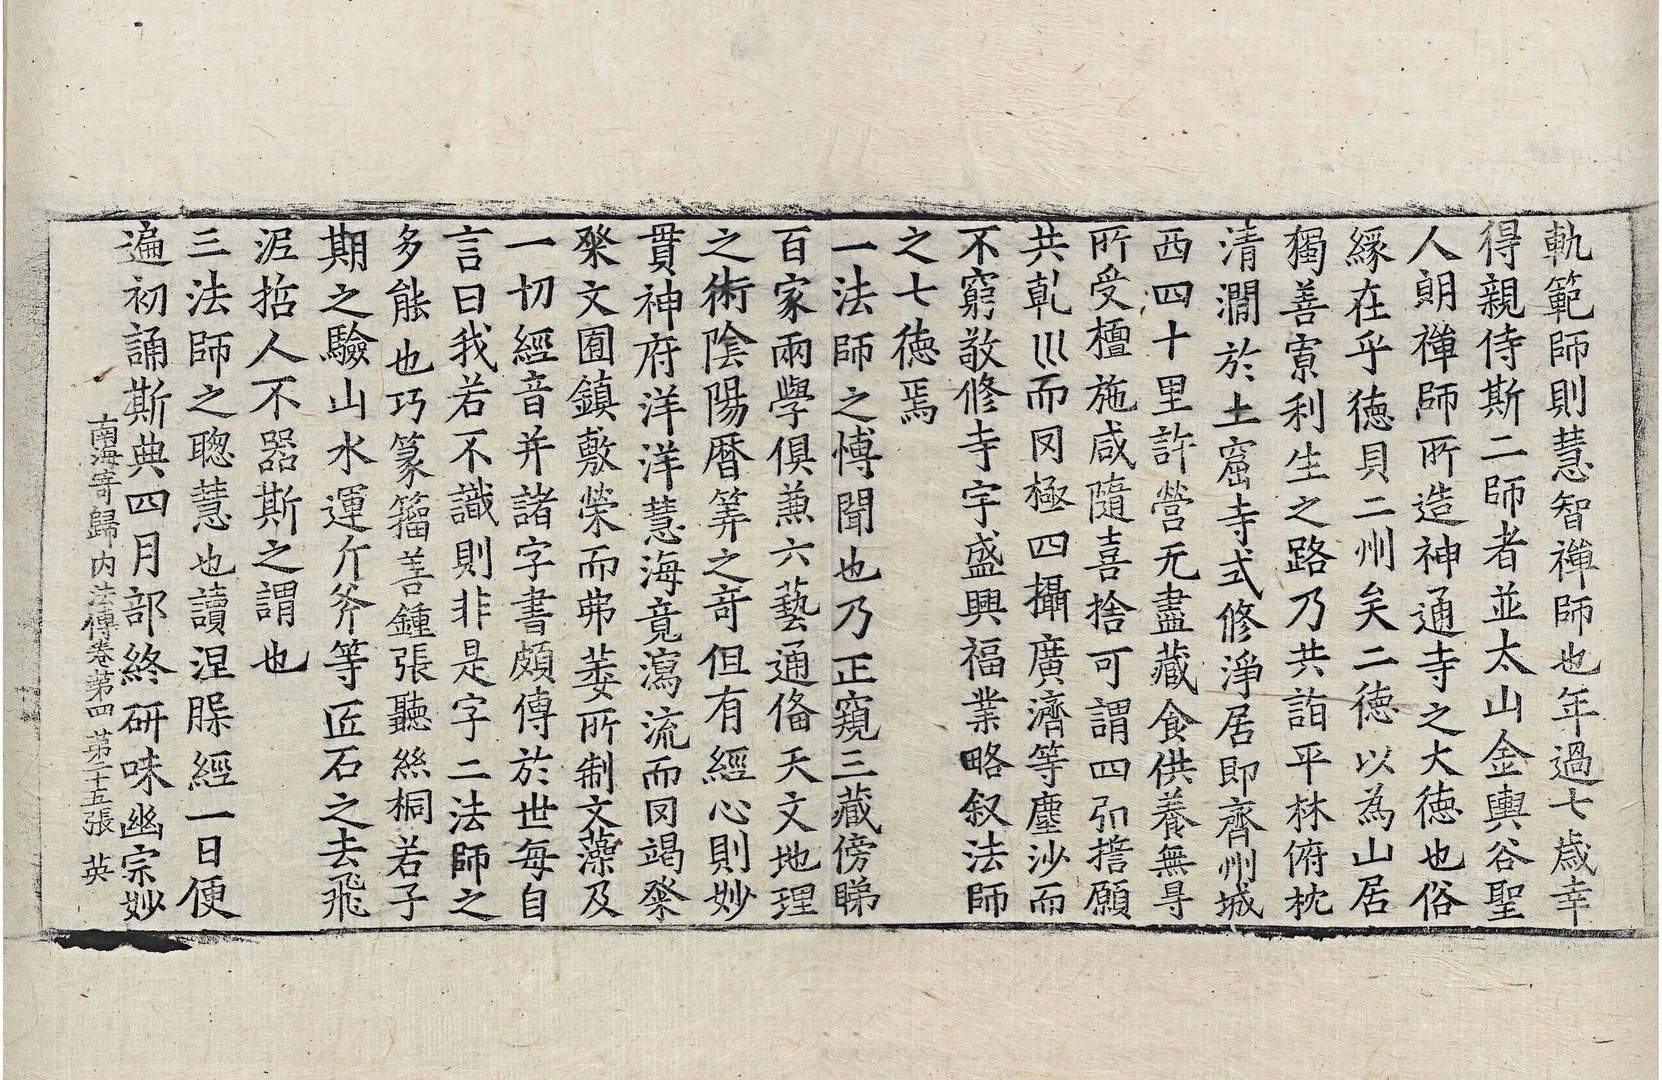 軌範師則慧智禪師也年過七歲幸
得親侍斯二師者並太山金輿谷聖
人朗禪師所造神通寺之大德也俗
緣在乎德貝二州矣二德以為山居
獨善寡利生之路乃共詣平林俯枕
清澗於土窟寺式修淨居即齊州城
西四十里許營无盡藏食供養無㝵
所受檀施咸隨喜捨可謂四弘誓願
共乹巛而罔極四攝廣濟等塵沙而
不窮敬修寺宇盛興福業略叙法師
之七德焉
一法師之博聞也乃正窺三藏傍睇
百家兩學俱兼六藝通俻天文地理
之術陰陽曆筭之竒但有經心則妙
貫神府洋洋慧海竟瀉流而罔竭粲
粲文囿鎮敷榮而弗萎所制文藻及
一切經音并諸字書頗傳於世每自
言曰我若不識則非是字二法師之
多能也巧篆籀善鍾張聽絲桐若子
期之驗山水運斤斧等匠石之去飛
泥哲人不器斯之謂也
三法師之聰慧也讀涅槃經一日便
遍初誦斯典四月部終研味幽宗妙
南海寄歸內法傳卷第四 第二十五張 英